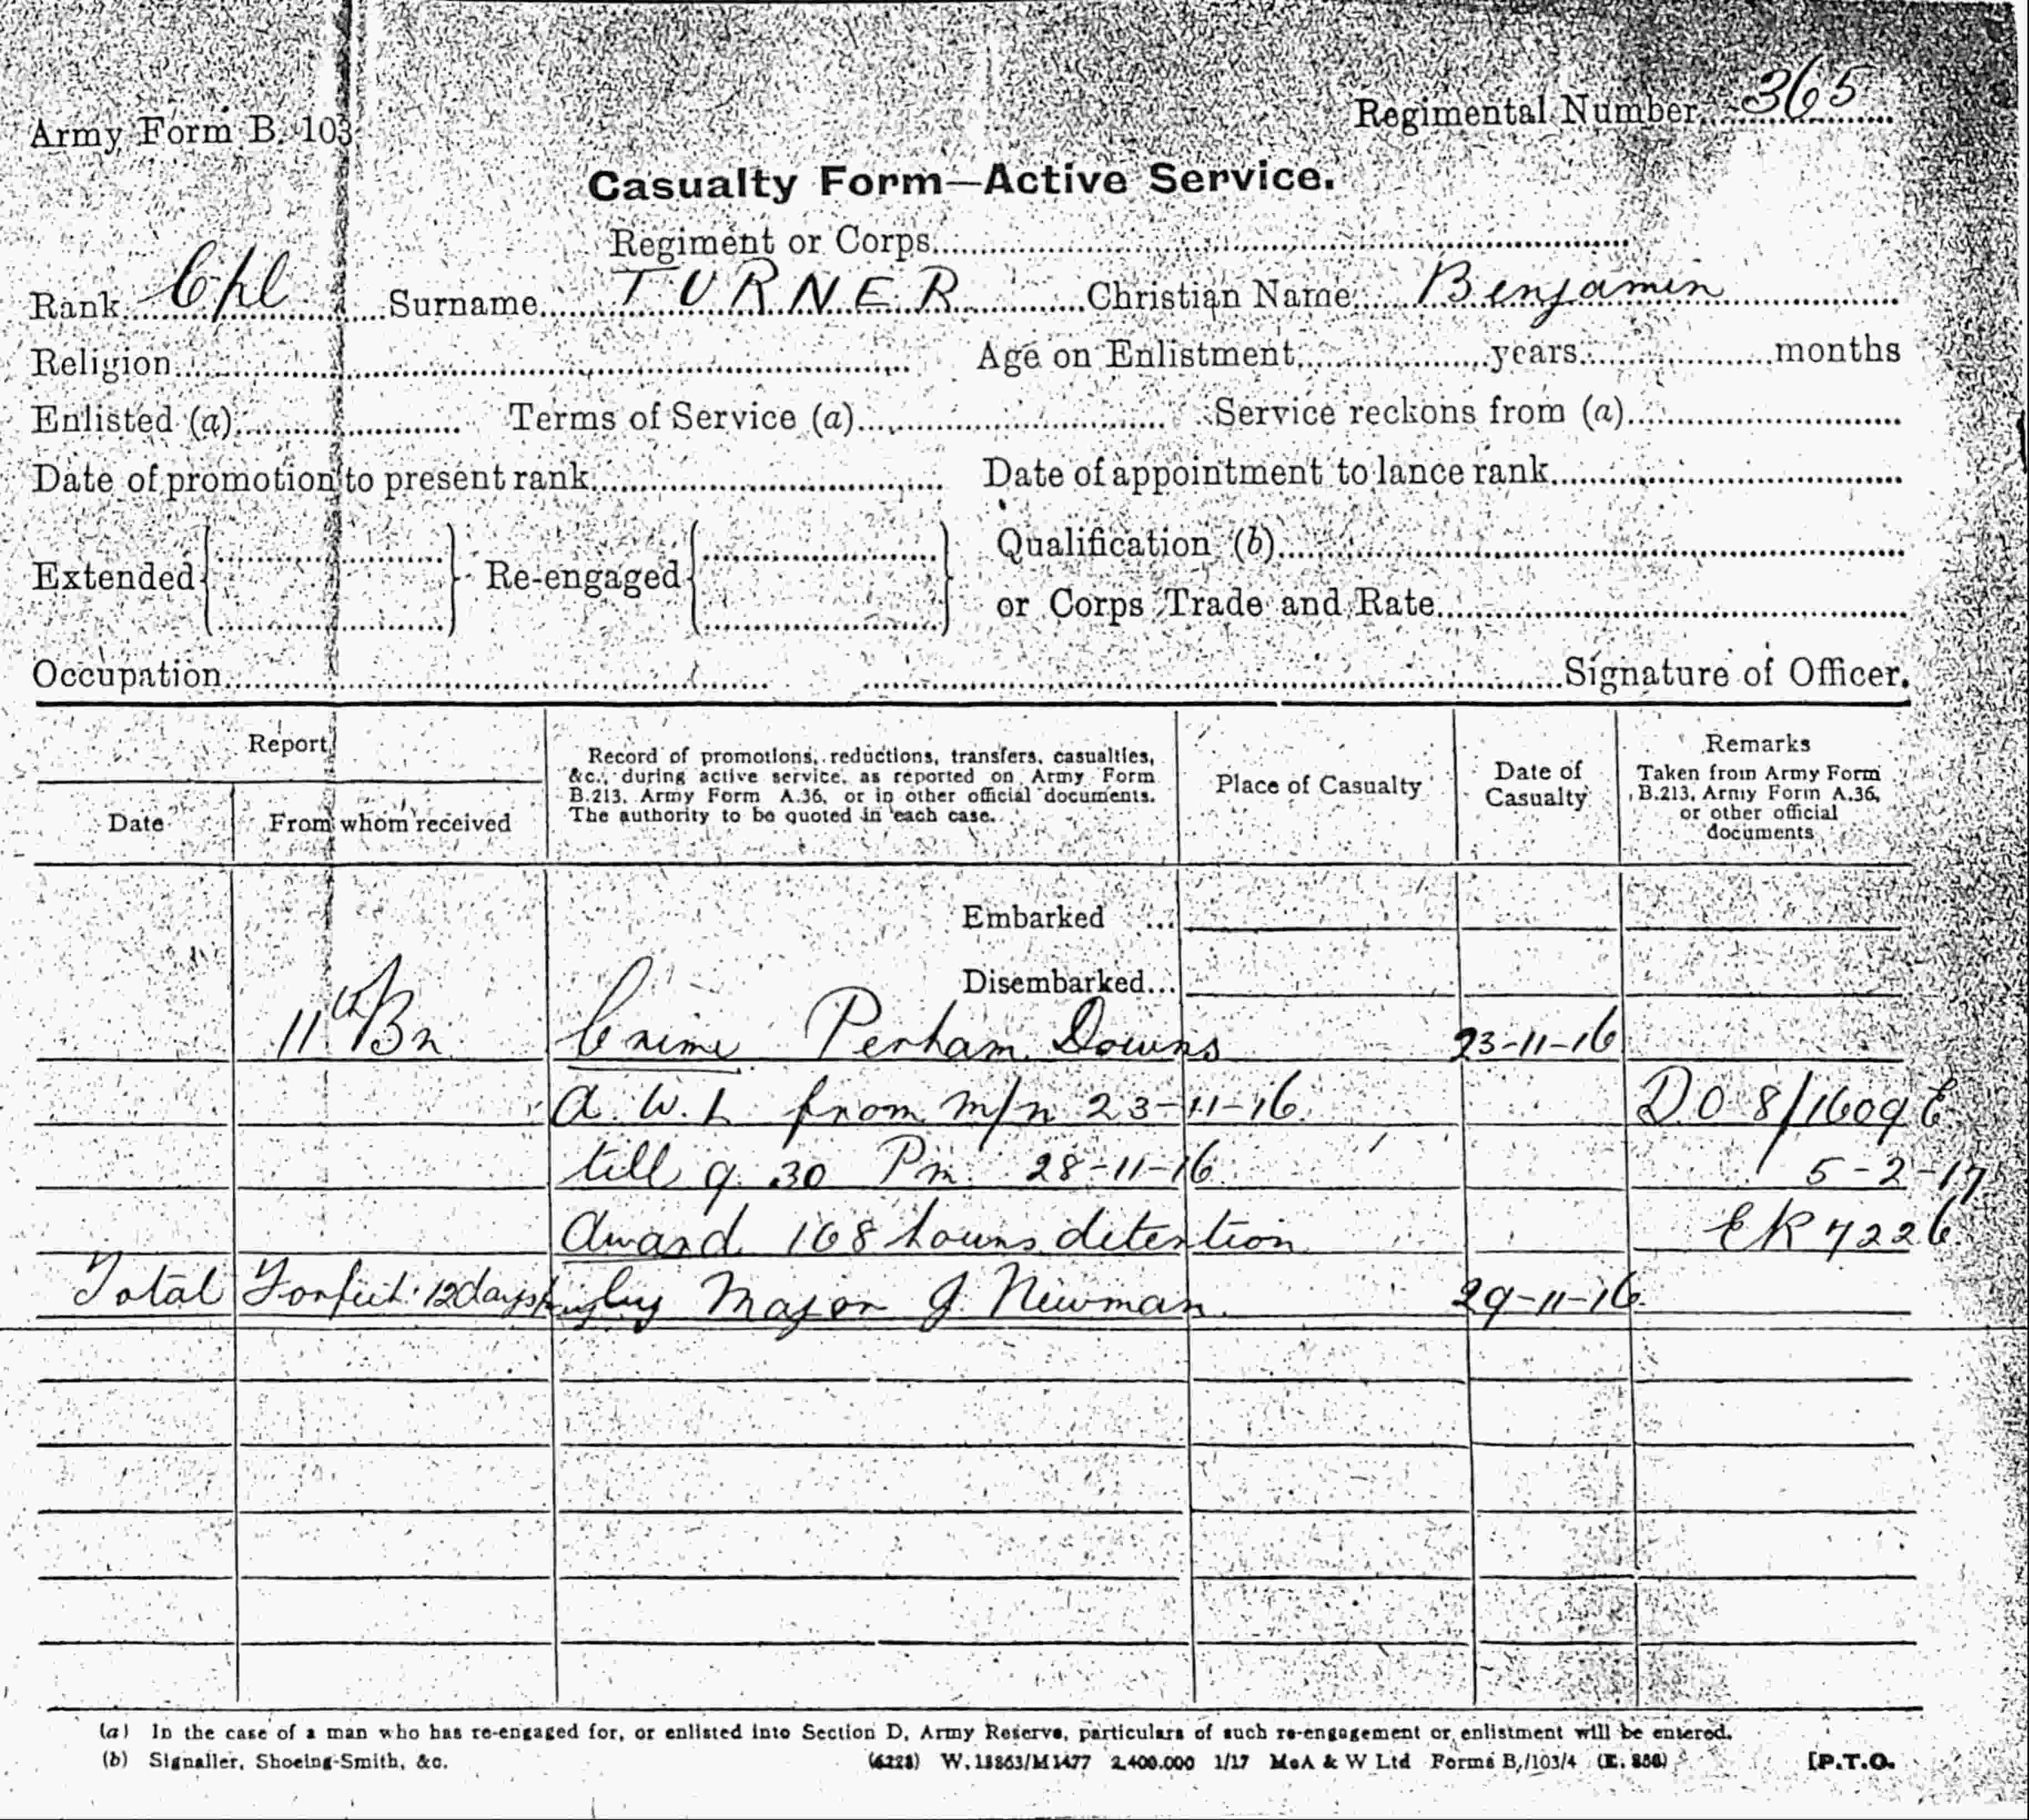 Regimental Number 365
Army Form B. 103
Casualty Form—Active Service.
Regiment or Corps
Rank Cpl Surname TURNER Christian Name Benjamin
Religion Age on Enlistment years months
Enlisted (a) Terms of Service (a) Service reckons from (a)
Date of promotion to present rank Date of appointment to lance rank
Extended Re-engaged Qualification (b)
or Corps Trade and Rate
Occupation Signature of Officer.
Report
Date
From whom received
Record of promotions, reductions, transfers, casualties,
&c., during active service, as reported on Army Form
B.213, Army Form A.36, or in other official documents.
The authority to be quoted in each case.
Place of Casualty
Date of
Casualty
Remarks
Taken from Army Form
B.213, Army Form A.36,
or other official
documents
Embarked ...
Disembarked...
11th Bn Crime Perham Downs 23-11-16
A.W.L from m/n 23-11-16 D.O 8/1609 E
till 9.30 Pm 28-11-16 5-2-17
Award 168 hours detention EK 7226
Total Forfeit 12 days pay by Major J. Newman 29-11-16
(a) In the case of a man who has re-engaged for, or enlisted into Section D, Army Reserve, particulars of such re-engagement or enlistment will be entered.
(b) Signaller, Shoeing-Smith, &c. (6228) W.13863/M1477 2,400,000 1/17 McA & W Ltd Forms B./103/4 (E. 856) [P.T.O.